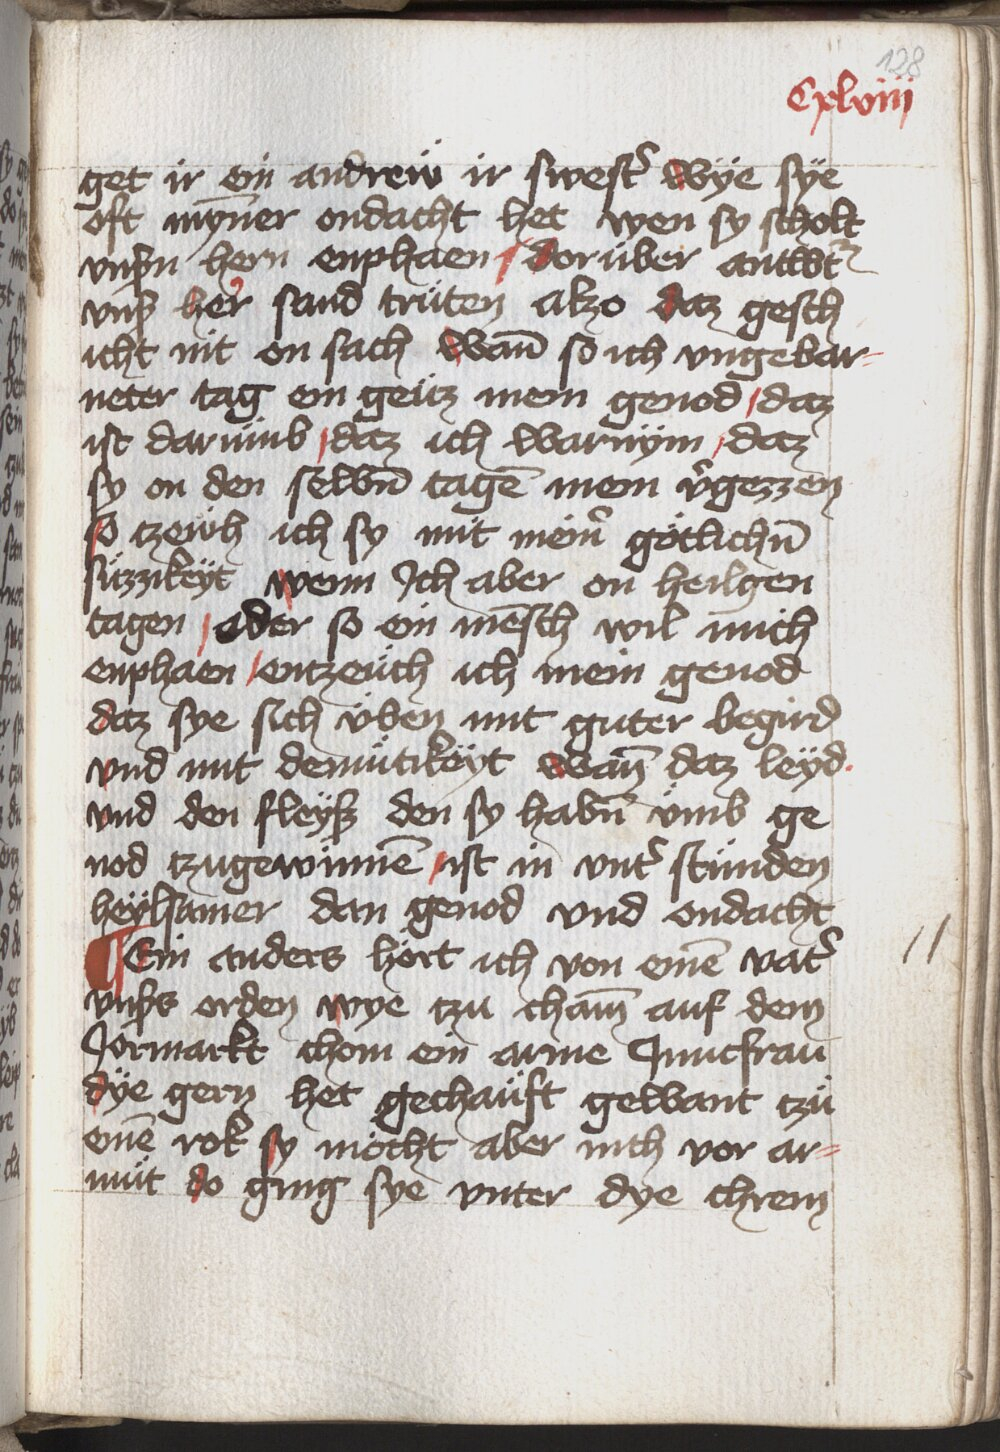 128
Cxlviii
get ir ein andrew ir swest᷑ wÿe sÿe
oft myn̄er ondacht het wen sy scholt
vnsn̄ hern enphaen / dorüber antwt᷑
vns her sand trüten alzo daz gesch
icht nit on sach wan̄ so ich vngebar=
neter tag ein geütz mein genod / daz
ist darumb / daz ich warnÿm / daz
sy on den selbn̄ tagē mein v᷑gezzen
so tzewh ich sy mit mein᷑ götlichn̄
süzzikeÿt wenn Ich aber on heilgen
tagen / oder so ein mēsch wil mich
enphaen / entzeüch ich mein genod
daz sye sich vben mit guter begird
vnd mit demütikeÿt wan̄ daz leÿd
vnd den fleÿß den sy habn̄ vmb ge
nod tzugewinnē / ist in vnt᷑ stunden
heÿlsamer dan genod vnd ondacht
¶ Ein anders hört ich von einē vat᷑
vnsers orden wye tzu cham̄ auf dem
Jormarkt chom ein arme Junckfrau
dÿe gern het gechaüft gewant tzü
einē rok sy mocht aber nith vor ar=
müt do ging sye vnter dye chrem